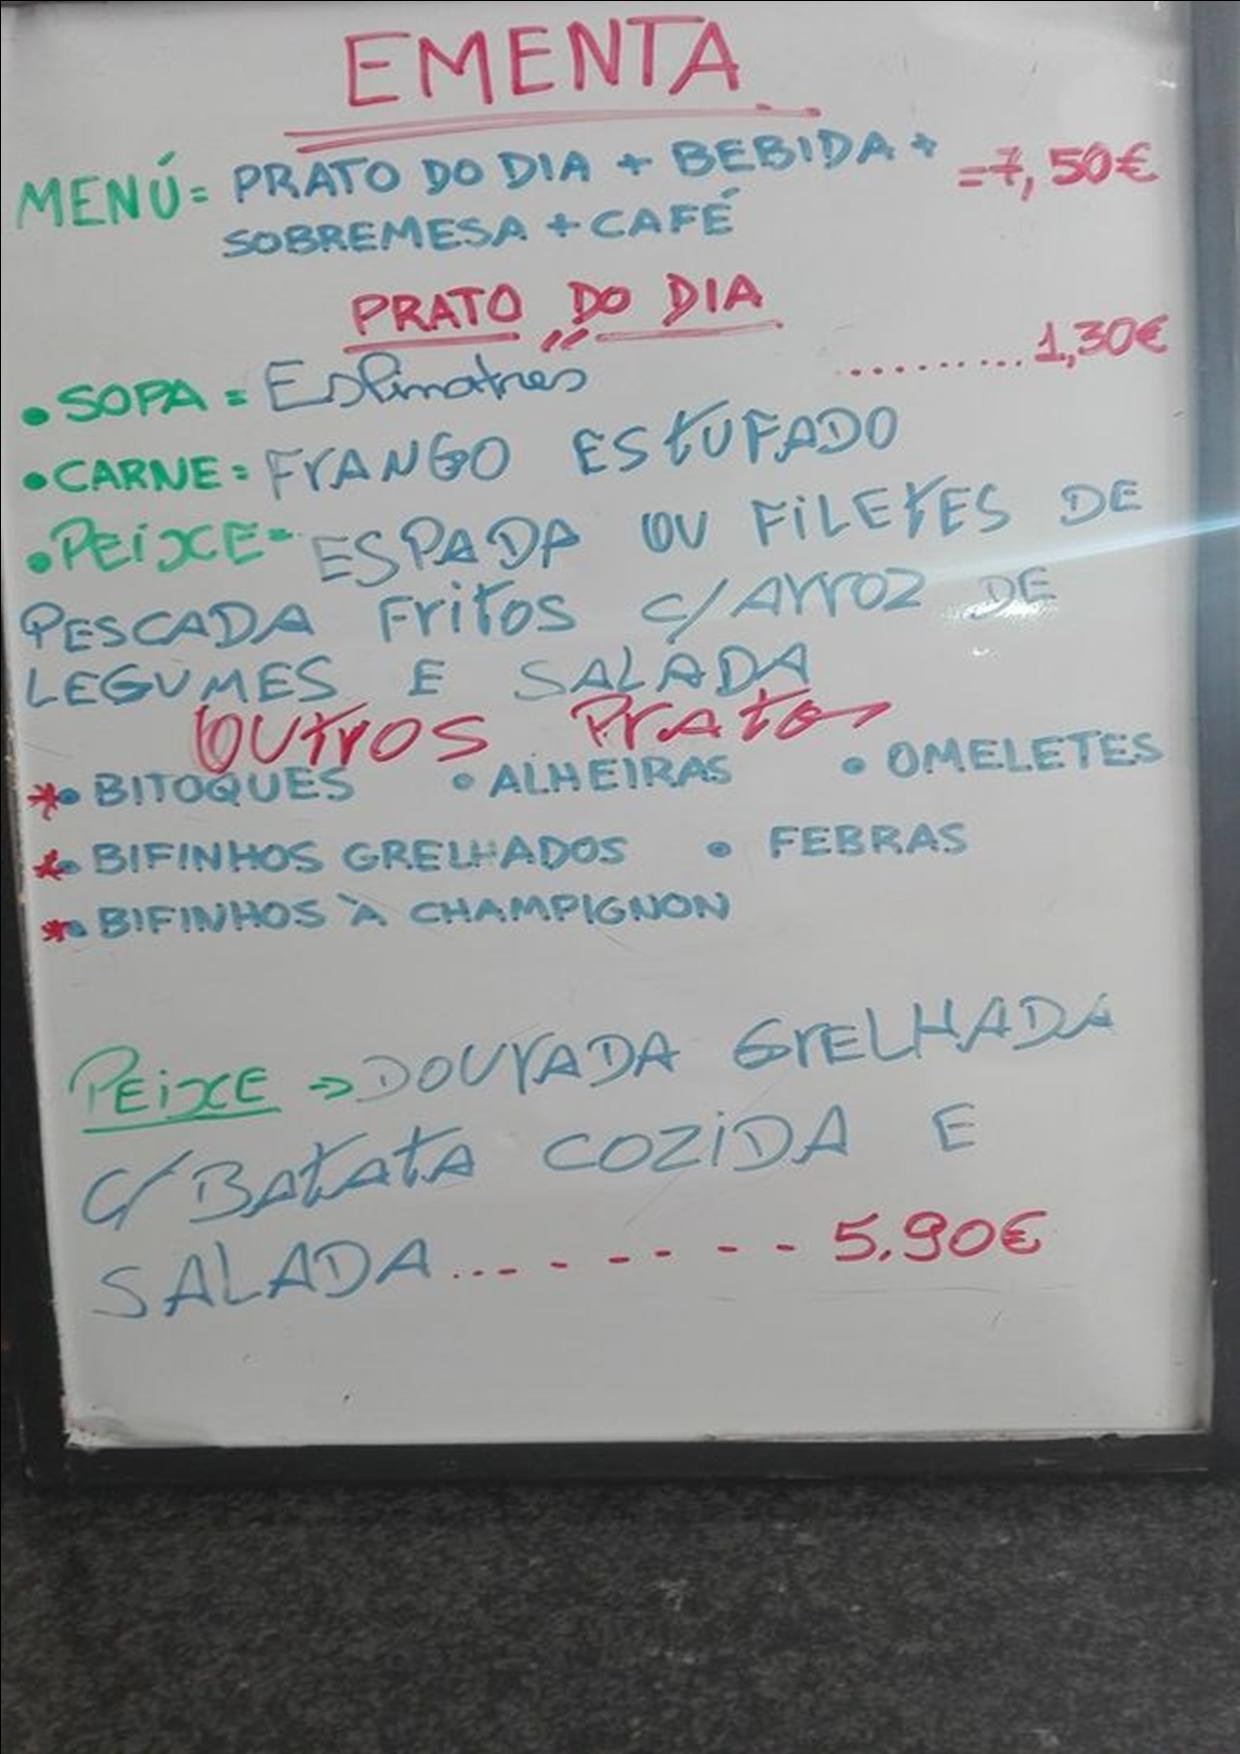 EMENTA
MENÚ = PRATO DO DIA + BEBIDA + = 7,50€
SOBREMESA + CAFÉ
PRATO DO DIA
• SOPA = Espinafres ......... 1,30€
• CARNE = FRANGO ESTUFADO
• PEIXE = ESPADA OU FILETES DE
PESCADA FRITOS C/ARROZ DE
LEGUMES E SALADA
OUTROS PRATOS
* • BITOQUES • ALHEIRAS • OMELETES
* • BIFINHOS GRELHADOS • FEBRAS
* • BIFINHOS À CHAMPIGNON
PEIXE → DOURADA GRELHADA
C/ BATATA COZIDA E
SALADA ... - - - - - - 5.90€